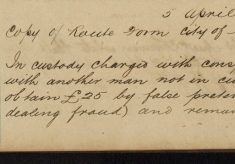 5 April
Copy of Route Form city of
In custody charged with cons
with another man not in cu
obtain £25 by false preten
dealing fraud) and reman